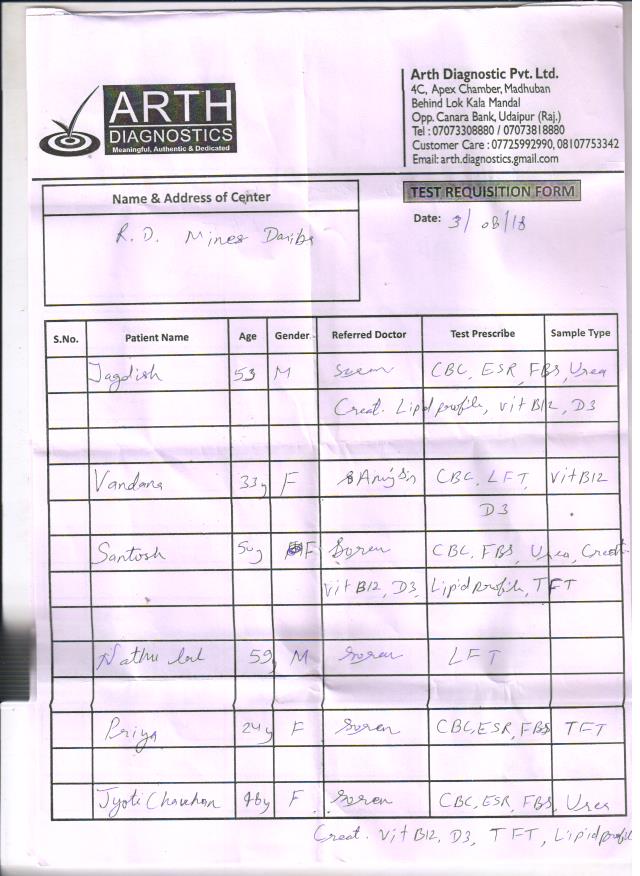 ARTH
DIAGNOSTICS
Meaningful, Authentic & Dedicated
Arth Diagnostic Pvt. Ltd.
4C, Apex Chamber, Madhuban
Behind Lok Kala Mandal
Opp. Canara Bank, Udaipur (Raj.)
Tel : 07073308880 / 07073818880
Customer Care : 07725992990, 08107753342
Email: arth.diagnostics.gmail.com
Name & Address of Center
R.D. Mines Dariba
TEST REQUISITION FORM
Date: 3/ 08/18
S.No. Patient Name Age Gender Referred Doctor Test Prescribe Sample Type
Jagdish 53 M CBC, ESR, FBS, Urea
Creat. Lipid profile, vit B12, D3
Vandana 33y F CBC, LFT, Vit B12
D3
Santosh 50y F Soren CBC, FBS, Urea, Creat.
Vit B12, D3, Lipid profile, TFT
Nathu lal 59y M Soren LFT
Priya 24y F Soren CBC, ESR, FBS TFT
Jyoti Chauhan 46y F Soren CBC, ESR, FBS, Urea
Creat. Vit B12, D3, TFT, Lipid profile